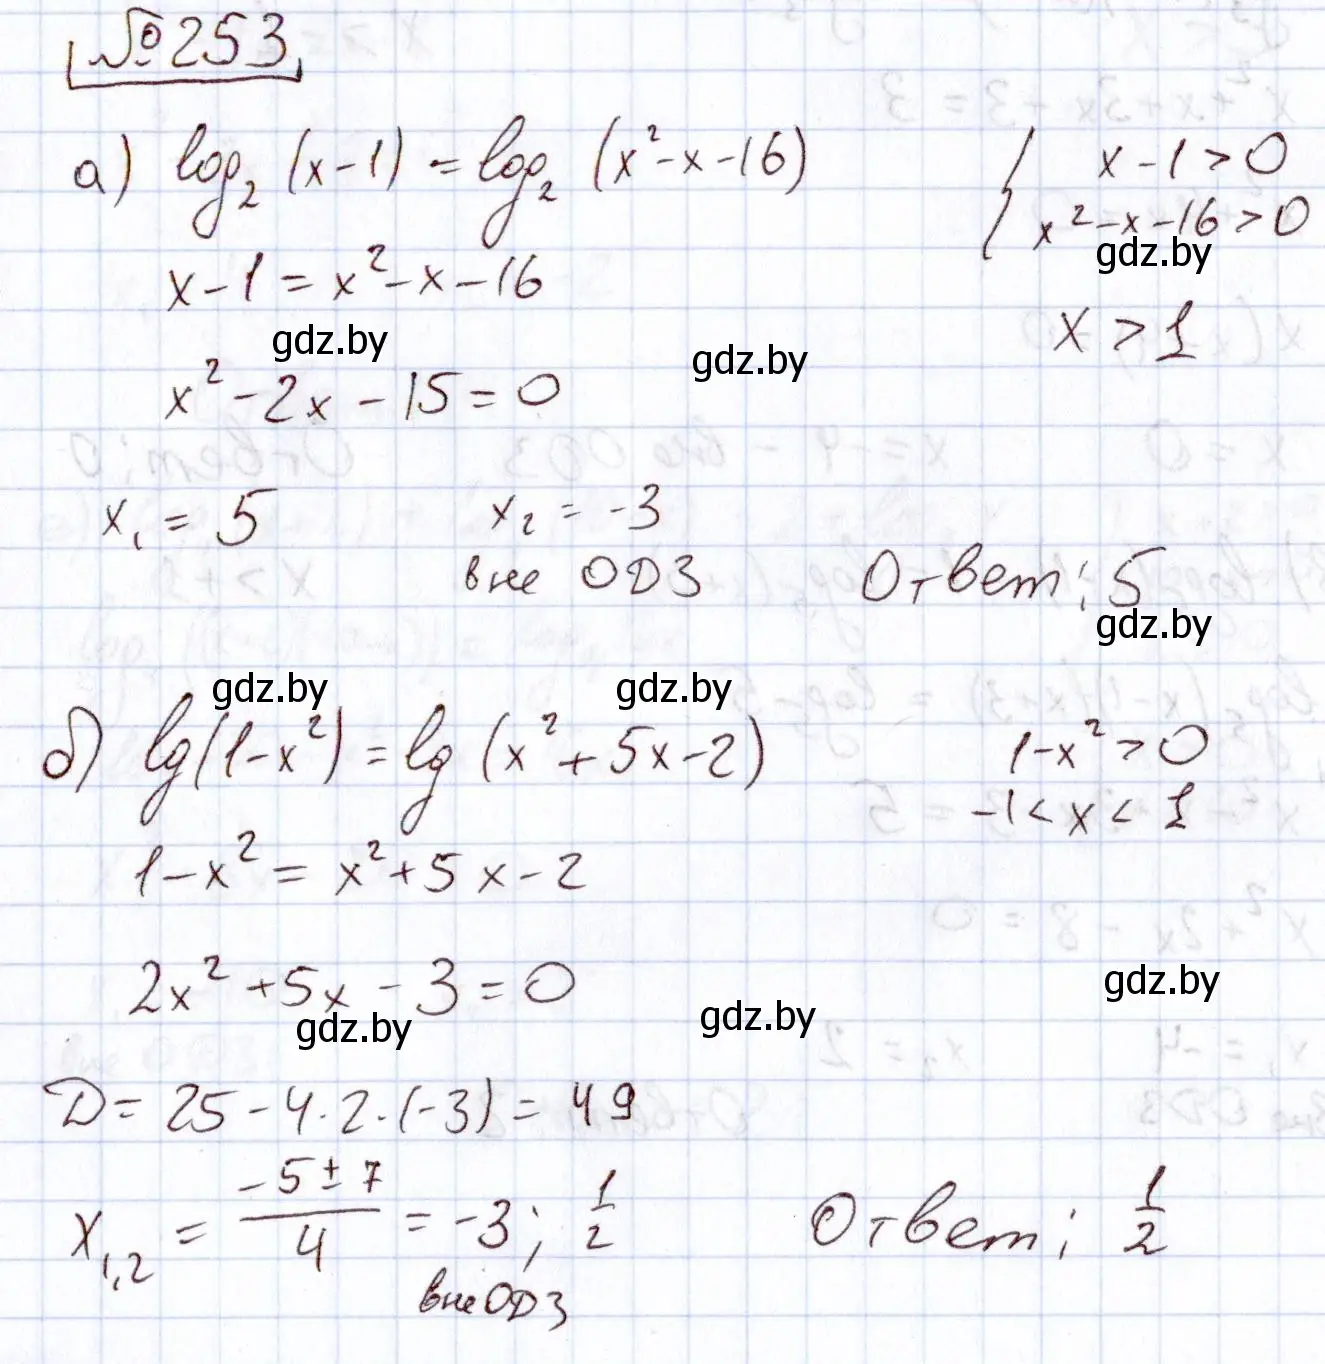 №253
а) log₂ (x-1) = log₂ (x²-x-16)
{ x-1>0
x²-x-16>0
gdz.by
x-1 = x²-x-16
x > 1
gdz.by
gdz.by
x²-2x-15=0
x₁ = 5
x₂ = -3
вне ОДЗ
Ответ: 5
gdz.by
gdz.by
gdz.by
б) lg(1-x²) = lg (x²+5x-2)
1-x²>0
-1<x<1
1-x² = x²+5x-2
2x²+5x-3=0
gdz.by
gdz.by
gdz.by
D= 25-4·2·(-3) = 49
x₁,₂ = (-5±7)/4 = -3; 1/2
вне ОДЗ
Ответ: 1/2